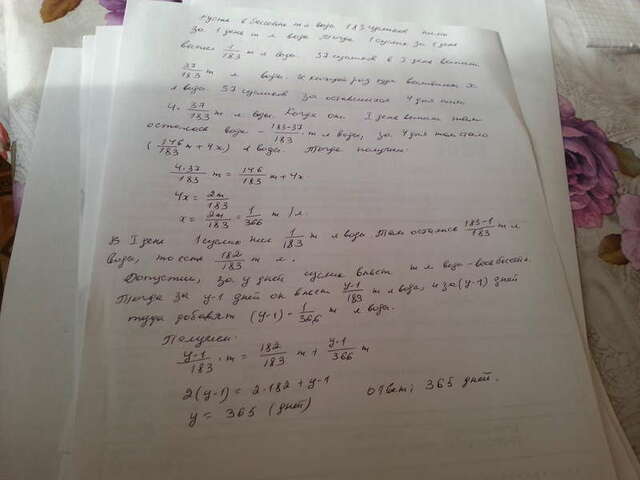 Пусть в бассейне m л воды 183 сусликов пили
за 1 день m л воды тогда 1 суслик за 1 день
выпил 1/183 m л воды. 37 сусликов в I день выпили
37/183 m л воды. И каждый раз туда вливают x
л воды. 37 сусликов за оставшихся 4 дня пили
4 · 37/183 m л воды. Когда они I день выпили там
осталось воды - 183-37/183 m л воды, за 4 дня там стало
(146/183 m + 4x) л воды. Тогда получим:
4·37/183 m = 146/183 m + 4x
4x = 2m/183
x = 2m/183 = 1/366 m л.
В I день 1 суслик пил 1/183 m л воды. Там осталось 183-1/183 m л
воды, то есть 182/183 m л.
Допустим, за y дней суслик выпьет m л воды - весь бассейн.
Тогда за y-1 дней он выпьет y-1/183 m л воды, и за (y-1) дней
туда добавят (y-1) · 1/366 m л воды.
Получим:
y-1/183 · m = 182/183 m + y-1/366 m
2(y-1) = 2·182 + y-1
y = 365 (дней) ответ: 365 дней.